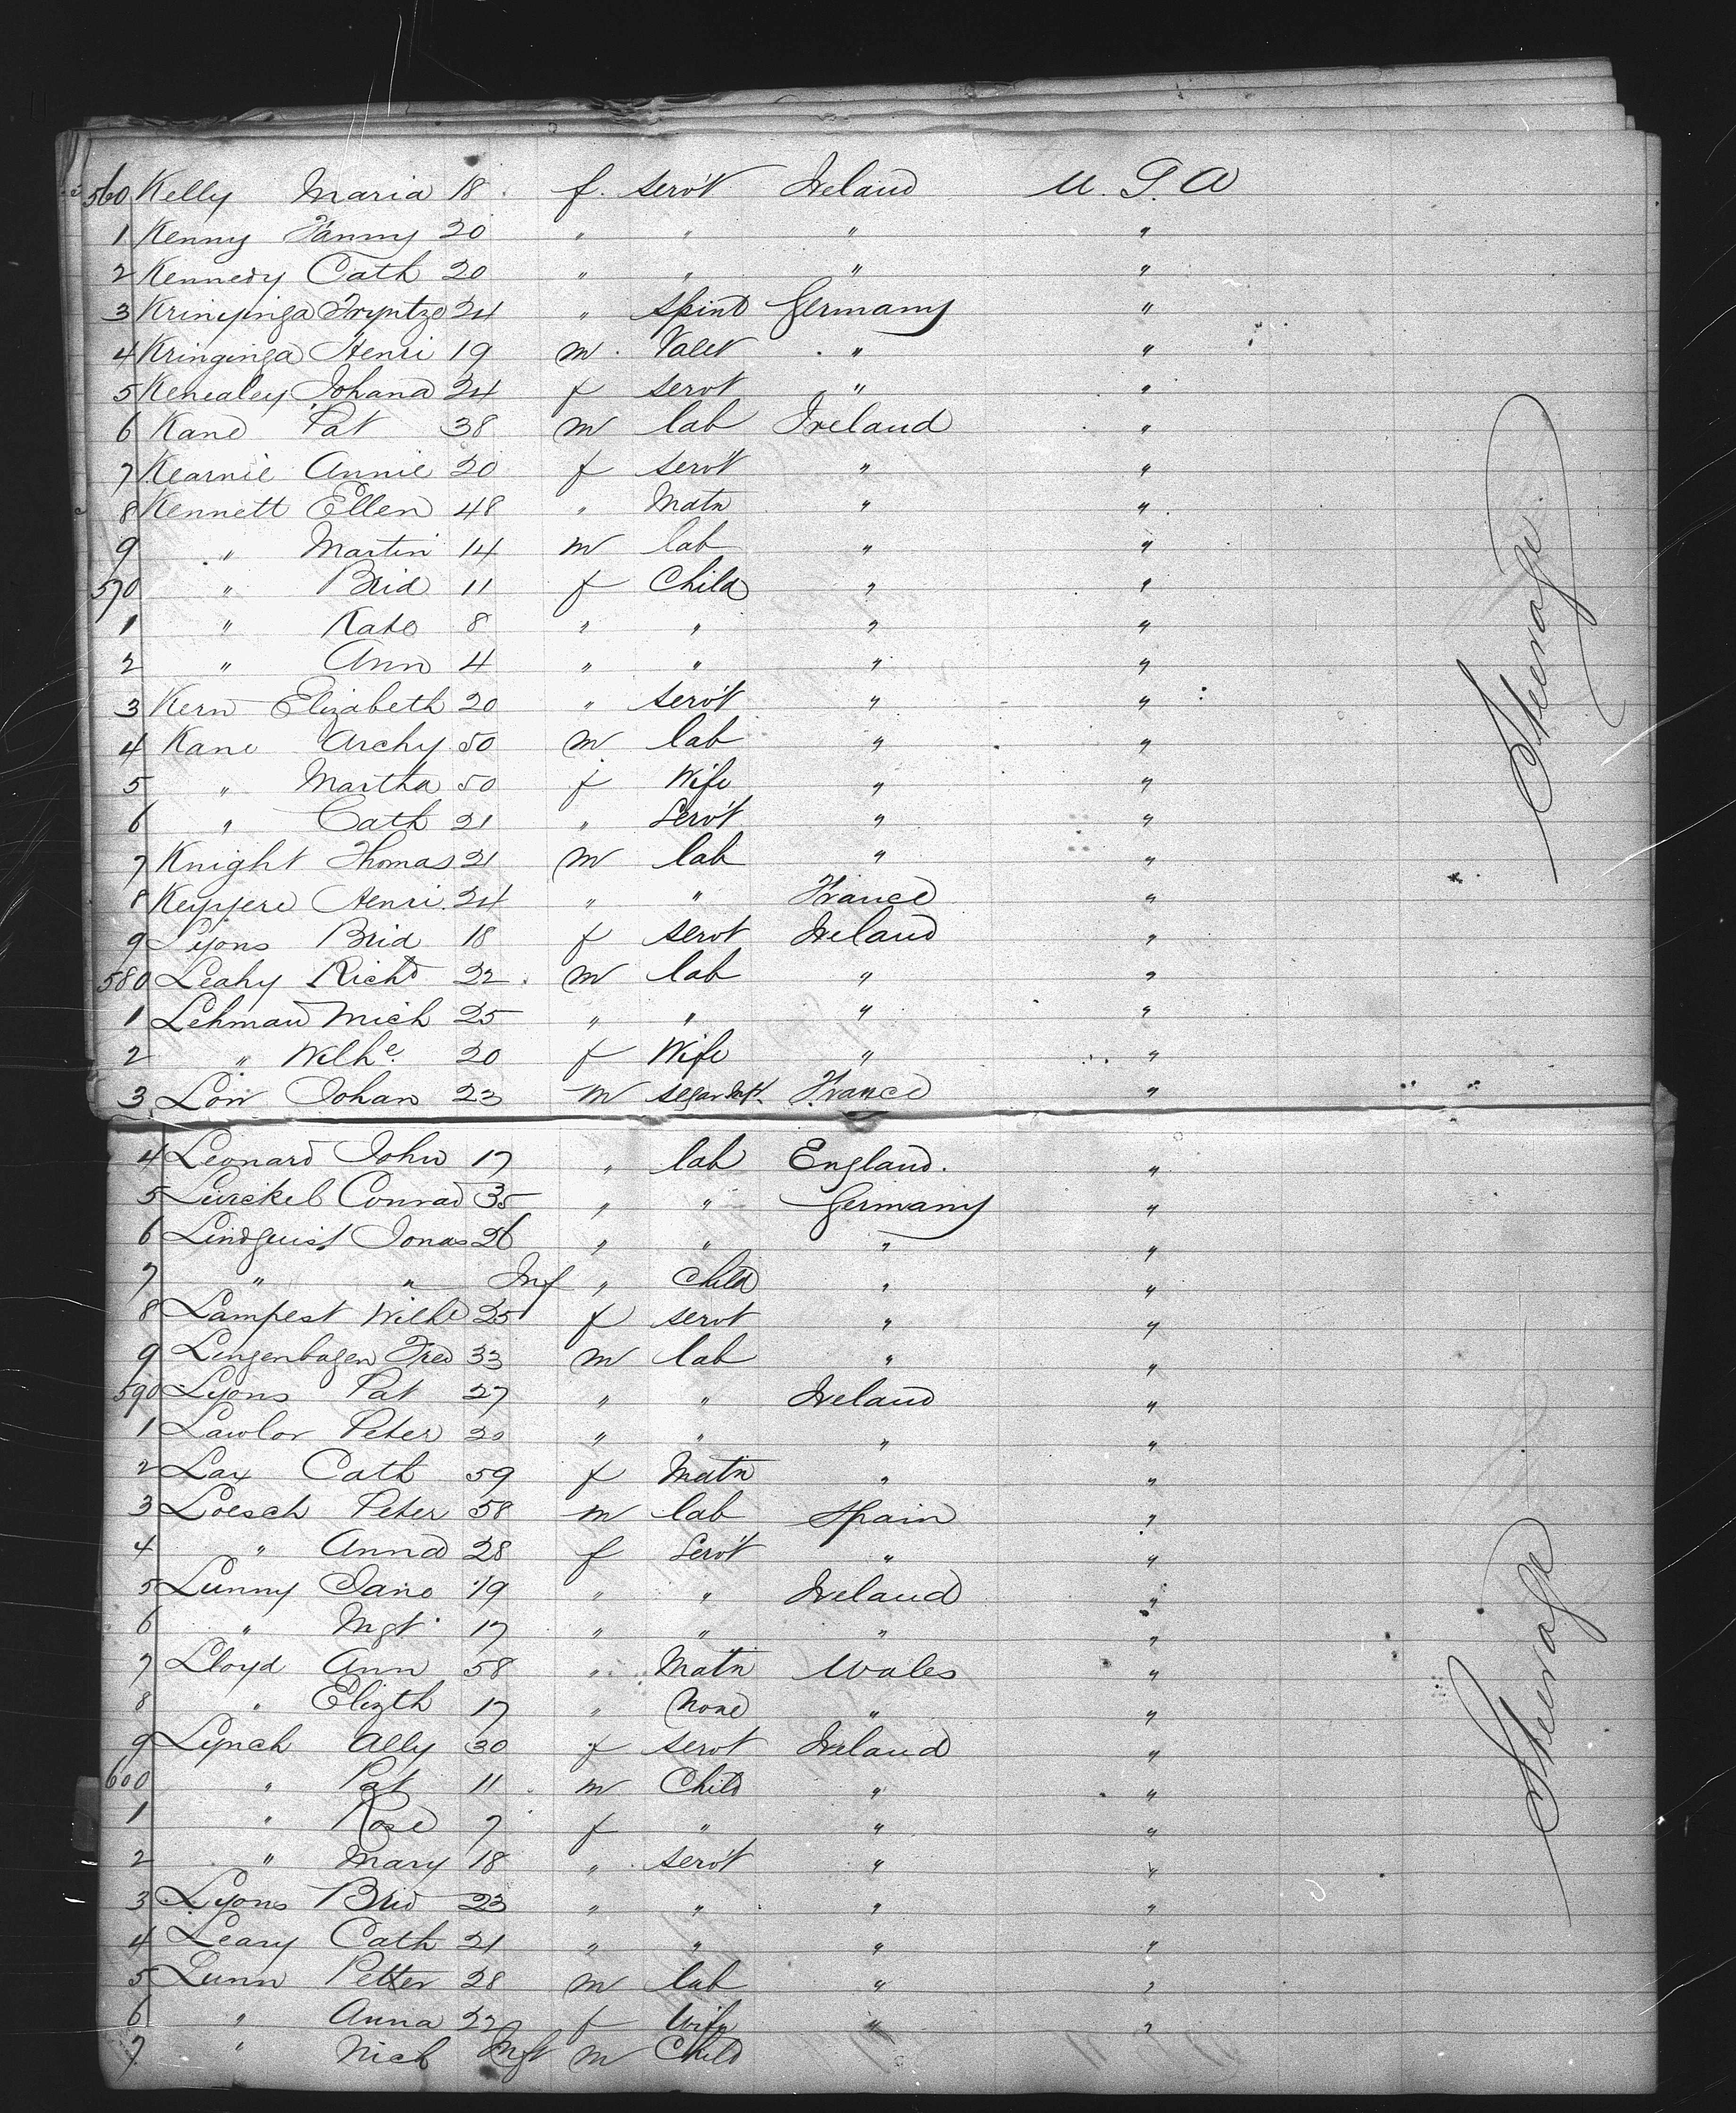 560 Kelly Maria 18 f. servt Ireland U.S.A
1 Kenny Fanny 20 " " " "
2 Kennedy Cath 20 " " " "
3 Kringinga Tryntze 24 " Spint Germany "
4 Kringinga Henri 19 m. Valet " "
5 Kenealey Johana 24 f servt " "
6 Kane Pat 38 m lab Ireland "
7 Kearnie Annie 20 f servt " "
8 Kennett Ellen 48 " Matn " "
9 " Martin 14 m lab " "
570 " Brid 11 f Child " "
1 " Kate 8 " " " "
2 " Ann 4 " " " "
3 Kern Elizabeth 20 " servt " "
4 Kane Archy 50 m lab " "
5 " Martha 50 f Wife " "
6 " Cath 21 " Servt " "
7 Knight Thomas 21 m lab " "
8 Henri 24 " " France "
9 Lyons Brid 18 f servt Ireland "
580 Leahy Richd 22 m lab " "
1 Lehman Mich 25 " " " "
2 " Wilhe. 20 f Wife " "
3 Low Johan 23 m France "
4 Leonard John 17 " lab England. "
5 Conrad 35 " " Germany "
6 Lindquist Jonas 26 " " " "
7 " " Inf " Child " "
8 Lampest Wilhe 25 f servt " "
9 Lingenbagen Fred 33 m lab " "
590 Lyons Pat 27 " " Ireland "
1 Lawlor Peter 20 " " " "
2 Lax Cath 59 f Matn " "
3 Loesch Peter 58 m lab Spain "
4 " Anna 28 f Servt " "
5 Lunny Jane 19 " " Ireland "
6 " Mgt 17 " " " "
7 Lloyd Ann 58 " Matn Wales "
8 " Elizth 17 " None " "
9 Lynch Ally 30 f servt Ireland "
600 " Pat 11 m Child " "
1 " Rose 7 f " " "
2 " Mary 18 " servt " "
3 Lyons Brid 23 " " " "
4 Leary Cath 21 " " " "
5 Lunn Petter 28 m lab " "
6 " Anna 22 f Wife " "
7 " Nich Inft m Child
Steerage
Steerage